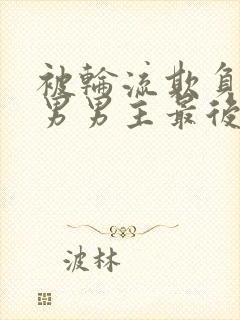 被輪流欺負
男男主最後
波林